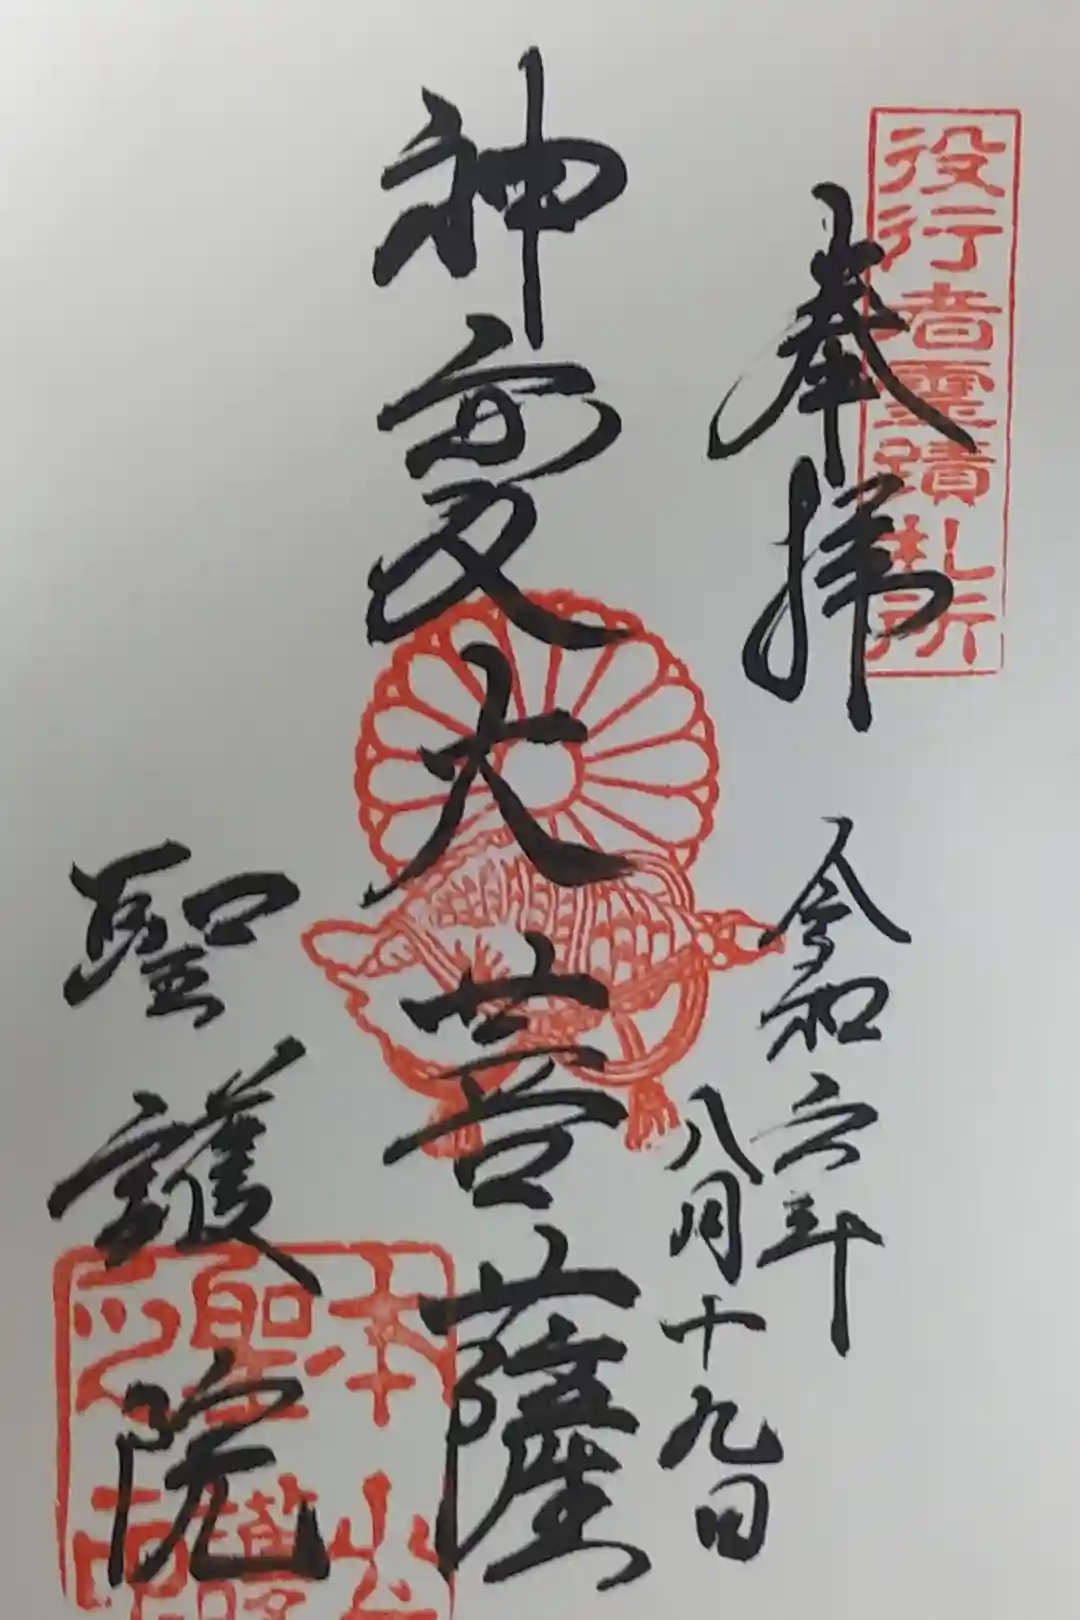 役行者霊蹟札所
奉拝
令和六年
八月十九日
神変大菩薩
聖護院
本山
聖護